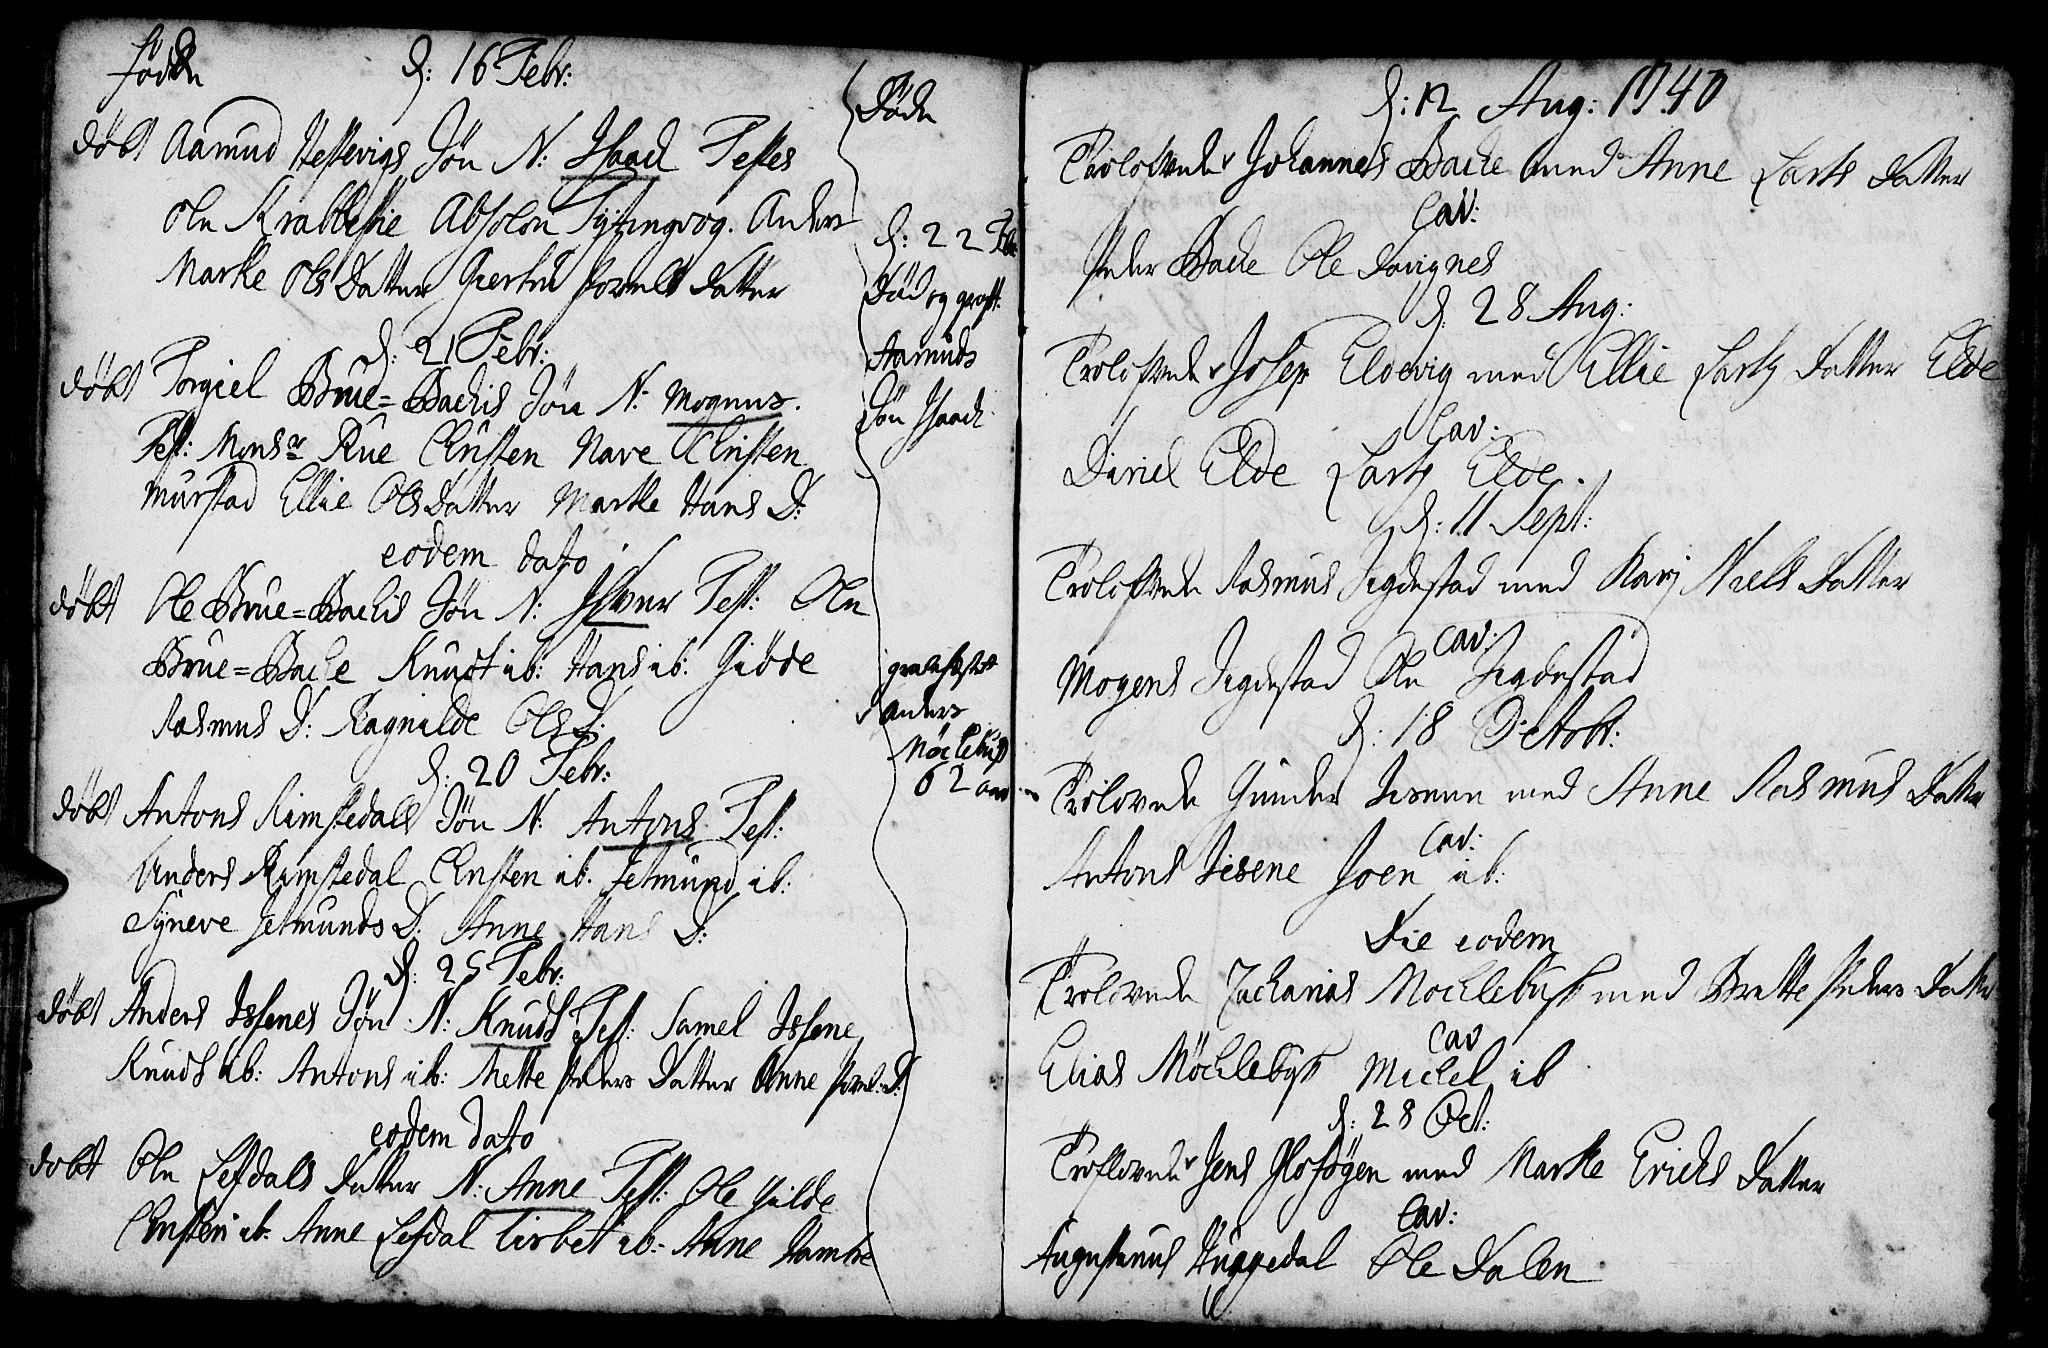 fødde
d: 16 Febr:
døbt Aamund Hessevigs Søn N: Isaach Testes
Ole Krabbesie Absolon Tytingvog. Anders
Marthe OlsDatter Giertrud Povels Datter
d: 21 Febr:
døbt Torgiel Brue=Bachis Søn N: Mognus.
Test: Monsr Rue Christen Nave Christen
Murstad Ellie OlsDatter Marthe Hans D:
eodem dato
døbt Ole Brue=Bachis Søn N: Iver Test: Ole
Brue=Bache Knudt ib: Hans ib: Giøde
Rasmus D: Ragnilde Ols D:
d: 20 Febr:
døbt Antons Rimstedals Søn N: Antons Test:
Anders Rimstedal Christen ib. Jetmund ib:
Syneve Jetmunds D. Anne Hans D:
d: 25 Febr:
døbt Anders Issenes Søn N: Knudt Test: Samel Issene
Knudt ib: Antons ib: Mette Peders Datter Anne Povels D:
eodem dato
døbt Ole Lefdals Datter N: Anne Test: Ole Hilde
Christen ib: Anne Lefdal Lisbet ib: Anne
Døde
d: 22 Febr
Død og
Aamunds
Søn Isaach
Anders
Møchlebust
62 aar
d: 12 Aug: 1740
Trolofvede Johannes Bache med Anne Lars Datter
Cav:
Peder Bache Ole Davignes
d: 28 Aug:
Trolofvede Josep Eldevig med Ellie Lars Datter Elde
Cav:
Daniel Elde Lars Elde.
d: 11 Sept:
Trolofvede Rasmus Jegdestad med Kari Niels Datter
Cav:
Mogens Jegdestad Ole Jegdestad
d: 18 Octobr:
Trolovede Gunder Isene med Anne Rasmus Datter
Cav:
Antons Isene Joen ib:
Die eodem
Trolovede Zacharias Mochlebust med Brette Peders Datter
Cav
Elias Möchlebust Michel ib
d: 28 Oct:
Troflovede Jens med Marthe Erichs Datter
Cav:
Augustinus Huggedal Ole Dalen